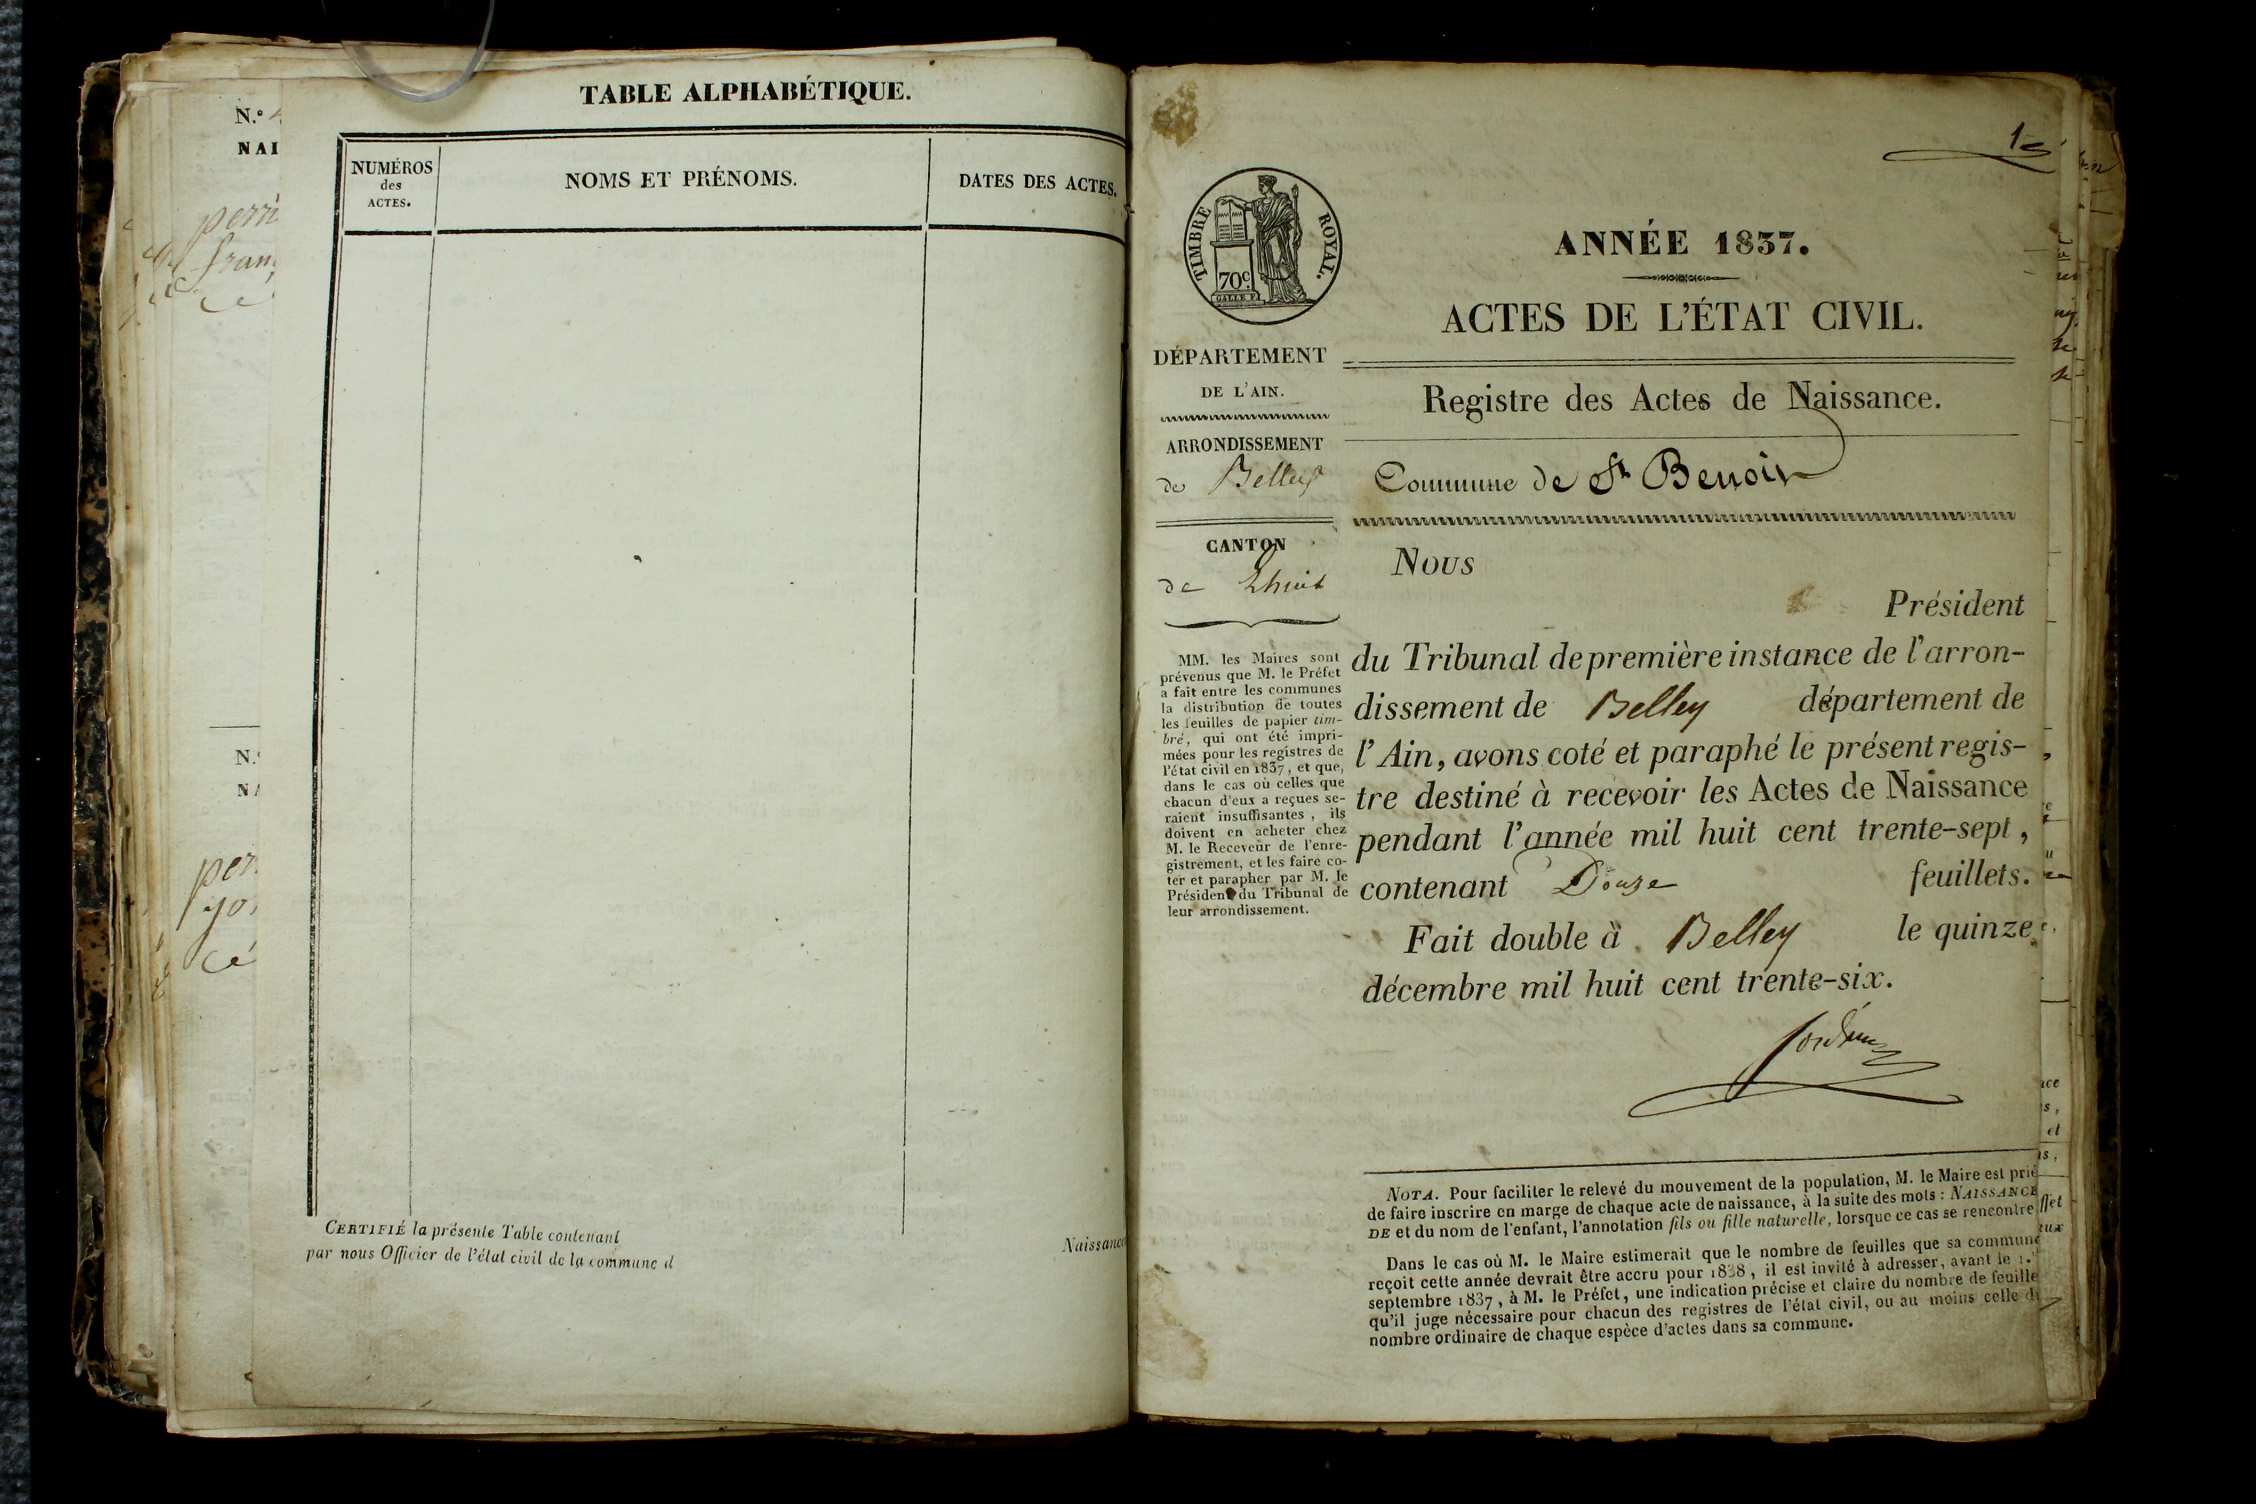 TABLE ALPHABÉTIQUE.
NUMÉROS
des
ACTES.
NOMS ET PRÉNOMS.
DATES DES ACTES.
CERTIFIÉ la présente Table contenant
Naissance
par nous Officier de l'état civil de la commune d
N.º
NAI
perri
fran
N.º
NA
per
cé
1
TIMBRE ROYAL.
70c.
ANNÉE 1837.
ACTES DE L'ÉTAT CIVIL.
Registre des Actes de Naissance.
Commune de St Benoit
DÉPARTEMENT
DE L'AIN.
ARRONDISSEMENT
de Belley
CANTON
de Lhuis
MM. les Maires sont
prévenus que M. le Préfet
a fait entre les communes
la distribution de toutes
les feuilles de papier tim-
bré, qui ont été impri-
mées pour les registres de
l'état civil en 1837, et que,
dans le cas où celles que
chacun d'eux a reçues se-
raient insuffisantes, ils
doivent en acheter chez
M. le Receveur de l'enre-
gistrement, et les faire co-
ter et parapher par M. le
Président du Tribunal de
leur arrondissement.
Nous
Président
du Tribunal de première instance de l'arron-
dissement de Belley département de
l'Ain, avons coté et paraphé le présent regis-
tre destiné à recevoir les Actes de Naissance
pendant l'année mil huit cent trente-sept,
contenant Douze feuillets.
Fait double à Belley le quinze
décembre mil huit cent trente-six.
NOTA. Pour faciliter le relevé du mouvement de la population, M. le Maire est prié
de faire inscrire en marge de chaque acte de naissance, à la suite des mots : NAISSANCE
DE et du nom de l'enfant, l'annotation fils ou fille naturelle, lorsque ce cas se rencontre
Dans le cas où M. le Maire estimerait que le nombre de feuilles que sa commune
reçoit cette année devrait être accru pour 1838, il est invité à adresser, avant le 1.er
septembre 1837, à M. le Préfet, une indication précise et claire du nombre de feuille
qu'il juge nécessaire pour chacun des registres de l'état civil, ou au moins celle d
nombre ordinaire de chaque espèce d'actes dans sa commune.